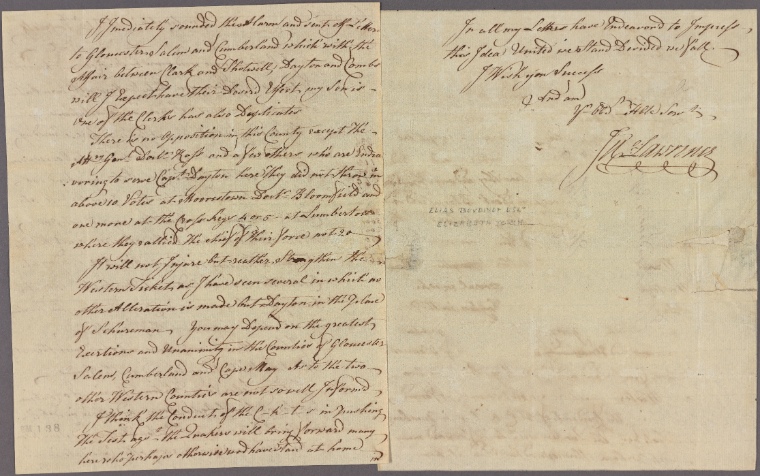 I Imediately sounded the Alarm and sent off Letters
to Gloucester Salem and Cumberland which with the
Affair between Clark and Shotwell, Dayton and Combs
will I Expect have their Desired Effect, my Son is
one of the Clerks has also Duplicates
There is no Opposition in this County except the
Atty Genl Doctr Ross and a few others who are Endea
voring to serve Capt Dayton here They did not throw in
above 10 Votes at Moorestown Doctr Bloomfield and
one more at the Cross Keys 4 or 5 - at Lumberton
where they rallied the chief of their force not 20
It will not Injure but reather Strengthen the
Western Ticket, as I have seen several in which no
other Alteration is made but Dayton in the place
of Schureman, You may Depend on the greatest
Exertions and Unanimity in the Counties of Gloucester
Salem, Cumberland and Cape May As to the two
other Western Counties are not so well Informed
I think the Conduct of the C-k-t-s in pushing
the Test agt the Quakers will bring forward many
here who perhaps otherwise wod have staid at home
In all my Letters have Endeavord to Impress
this Idea United we Stand Divided we fall.
I Wish you Success
And am
Yr Obdt Hble Servt
Jno Lawrence
ELIAS BOUDINOT ESQr
ELIZABETH TOWN